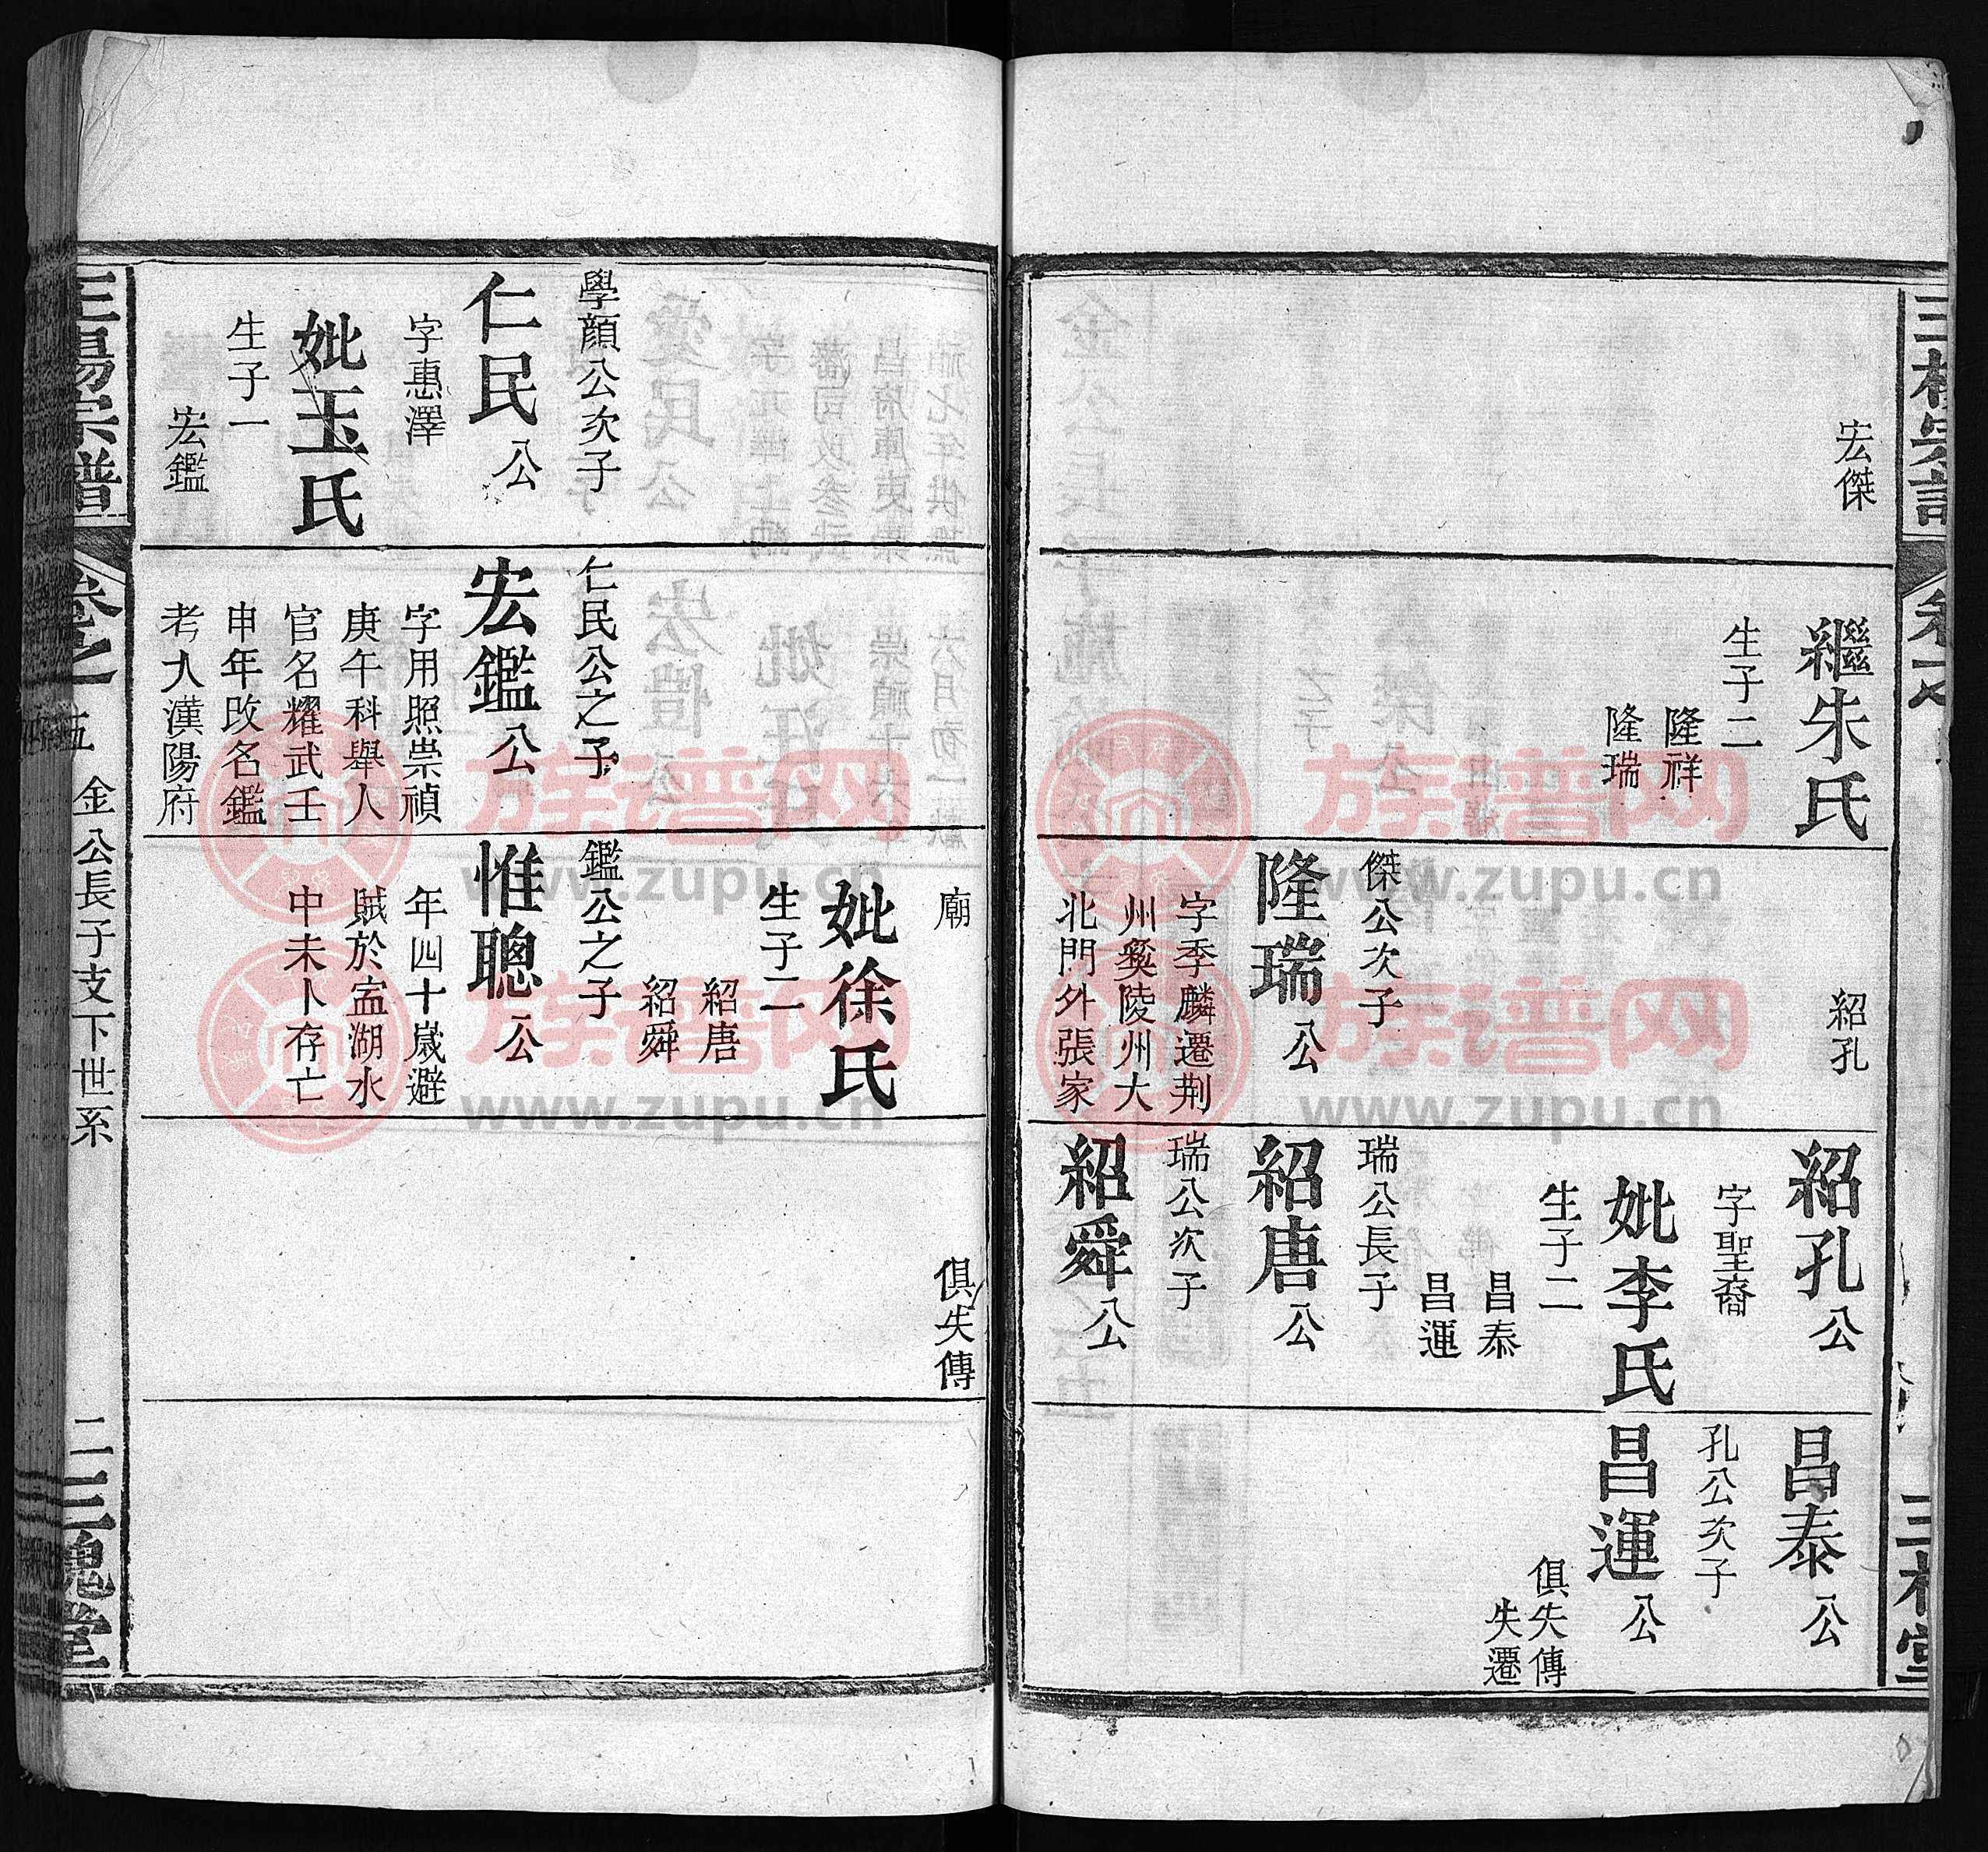 宏傑
繼朱氏
生子二
隆祥
隆瑞
紹孔
傑公次子
隆瑞公
字季麟遷荆
州夔陵州大
北門外張家
紹孔公
字聖裔
妣李氏
生子二
昌泰
昌運
瑞公長子
紹唐公
瑞公次子
紹舜公
昌泰公
孔公次子
昌運公
俱失傳
失遷
三槐堂
學顏公次子
仁民公
字惠澤
妣玉氏
生子一
宏鑑
仁民公之子
宏鑑公
字用照崇禎
庚午科舉人
官名耀武壬
申年改名鑑
考入漢陽府
廟
妣徐氏
生子二
紹唐
紹舜
鑑公之子
惟聰公
年四十歲避
賊於𥁕湖水
中未卜存亡
俱失傳
宗譜
卷之一
五
金公長子支下世系
二
三槐堂
族谱网
www.zupu.cn
族谱网
www.zupu.cn
族谱网
www.zupu.cn
族谱网
www.zupu.cn